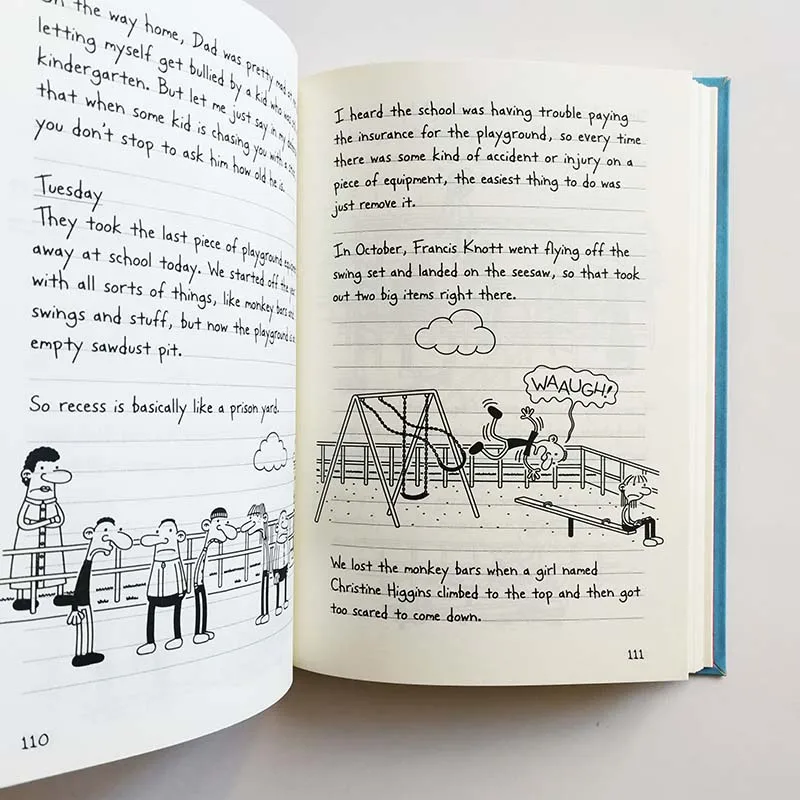 the way home, Dad was pretty mad at
letting myself get bullied by a kid who was
kindergarten. But let me just say in my
that when some kid is chasing you with a
you don't stop to ask him how old he is.
Tuesday
They took the last piece of playground
away at school today. We started off the
with all sorts of things, like monkey bars and
swings and stuff, but now the playground is
empty sawdust pit.
So recess is basically like a prison yard.
110
I heard the school was having trouble paying
the insurance for the playground, so every time
there was some kind of accident or injury on a
piece of equipment, the easiest thing to do was
just remove it.
In October, Francis Knott went flying off the
swing set and landed on the seesaw, so that took
out two big items right there.
WAAUGH!
We lost the monkey bars when a girl named
Christine Higgins climbed to the top and then got
too scared to come down.
111